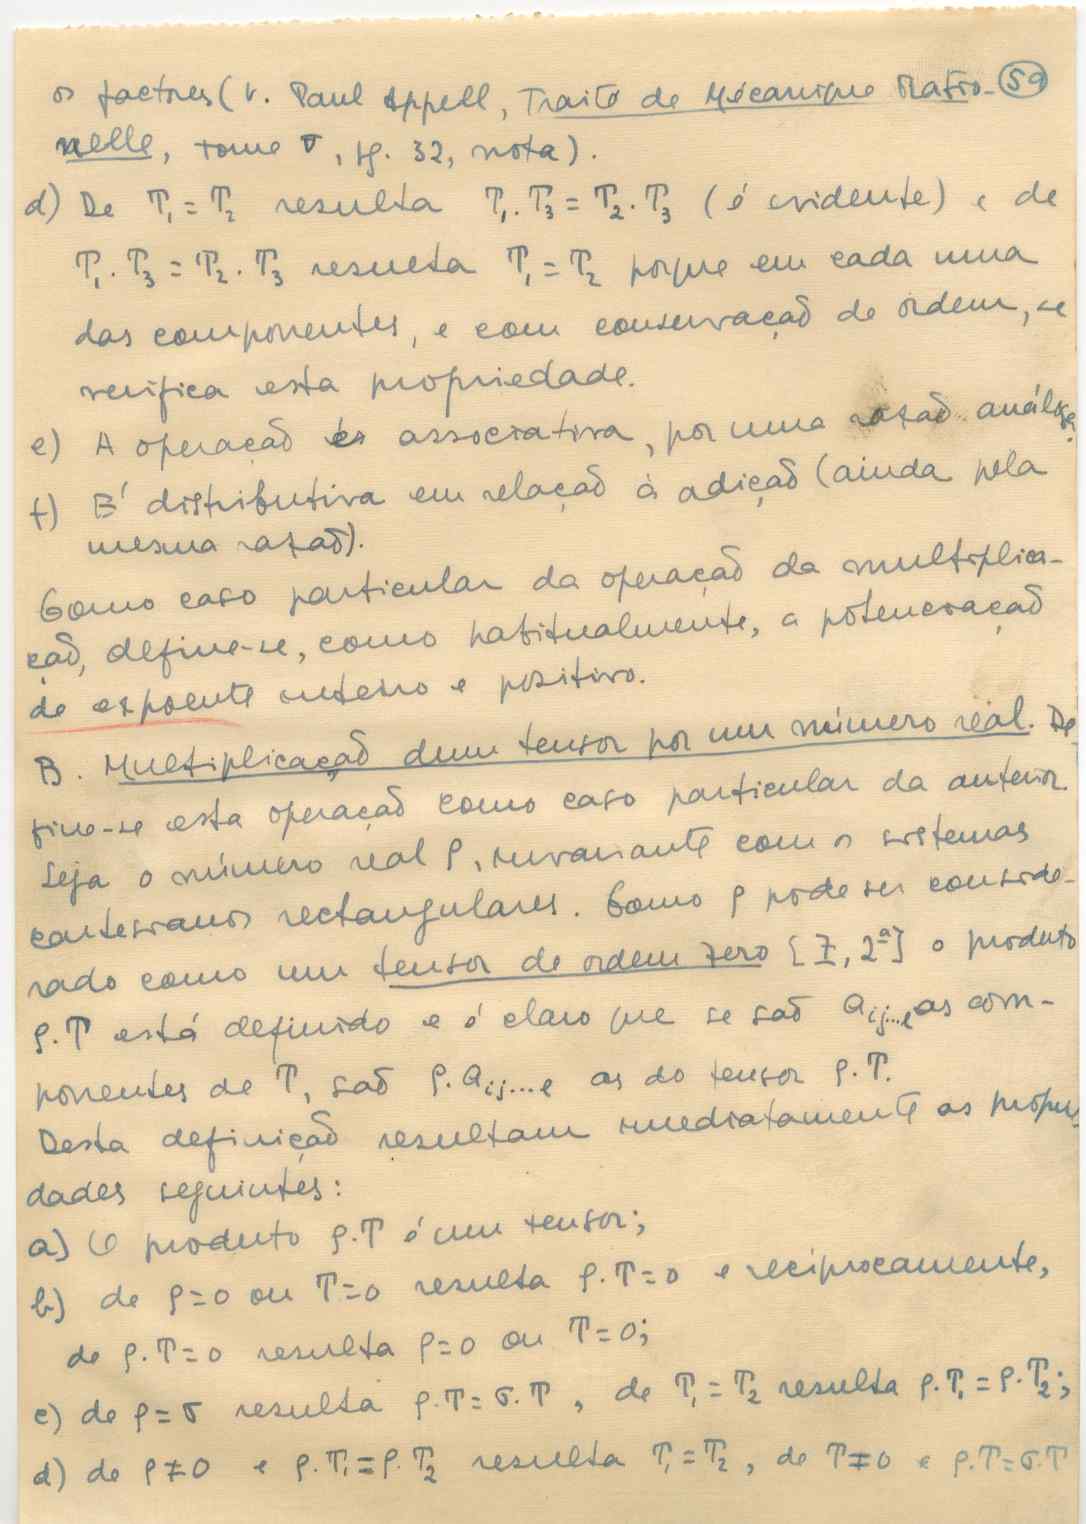 os factores (v. Paul Appell, Traité de Mécanique Ratio- 59
nelle, tome V, pg. 32, nota).
d) De T₁ = T₂ resulta T₁.T₃ = T₂.T₃ (é evidente) e de
T₁.T₃ = T₂.T₃ resulta T₁ = T₂ porque em cada uma
das componentes, e com conservação de ordem, se
verifica esta propriedade.
e) A operação é associativa, por uma razão análoga.
f) É distributiva em relação à adição (ainda pela
mesma razão).
Como caso particular da operação da multiplica-
ção, define-se, como habitualmente, a potenciação
de expoente inteiro e positivo.
B. Multiplicação dum tensor por um número real. De-
fine-se esta operação como caso particular da anterior
Seja o número real ρ, invariante com os sistemas
cartesianos rectangulares. Como ρ pode ser conside-
rado como um tensor de ordem zero [7, 2ª] o produto
ρ.T está definido e é claro que se são aᵢⱼ...ₗ as com-
ponentes de T, são ρ.aᵢⱼ...ₗ as do tensor ρ.T.
Desta definição resultam imediatamente as proprie
dades seguintes:
a) O produto ρ.T é um tensor;
b) de ρ=0 ou T=0 resulta ρ.T=0 e reciprocamente,
de ρ.T=0 resulta ρ=0 ou T=0;
c) de ρ=σ resulta ρ.T=σ.T, de T₁=T₂ resulta ρ.T₁=ρ.T₂;
d) de ρ≠0 e ρ.T₁=ρ.T₂ resulta T₁=T₂, de T≠0 e ρ.T=σ.T